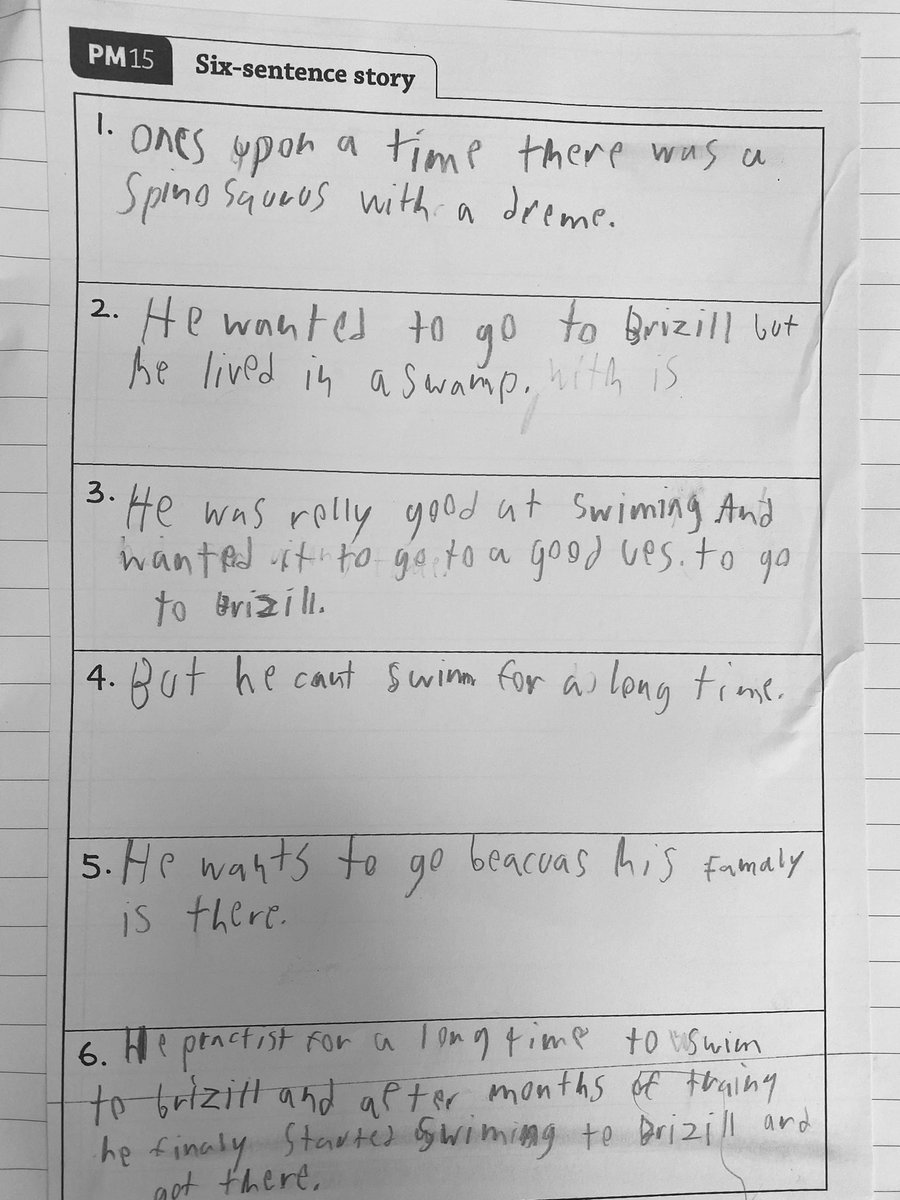 PM15 Six-sentence story
1. Ones upon a time there was a
Spinosaurus with a dreme.
2. He wanted to go to Brizill but
he lived in a swamp. with is
3. He was relly good at swiming And
wanted it to go to a good ues. to go
to Brizill.
4. But he cant swim for a long time.
5. He wants to go beacuas his famaly
is there.
6. He practist for a long time to swim
to brizill and after months of traing
he finaly started swiming to Brizill and
got there.